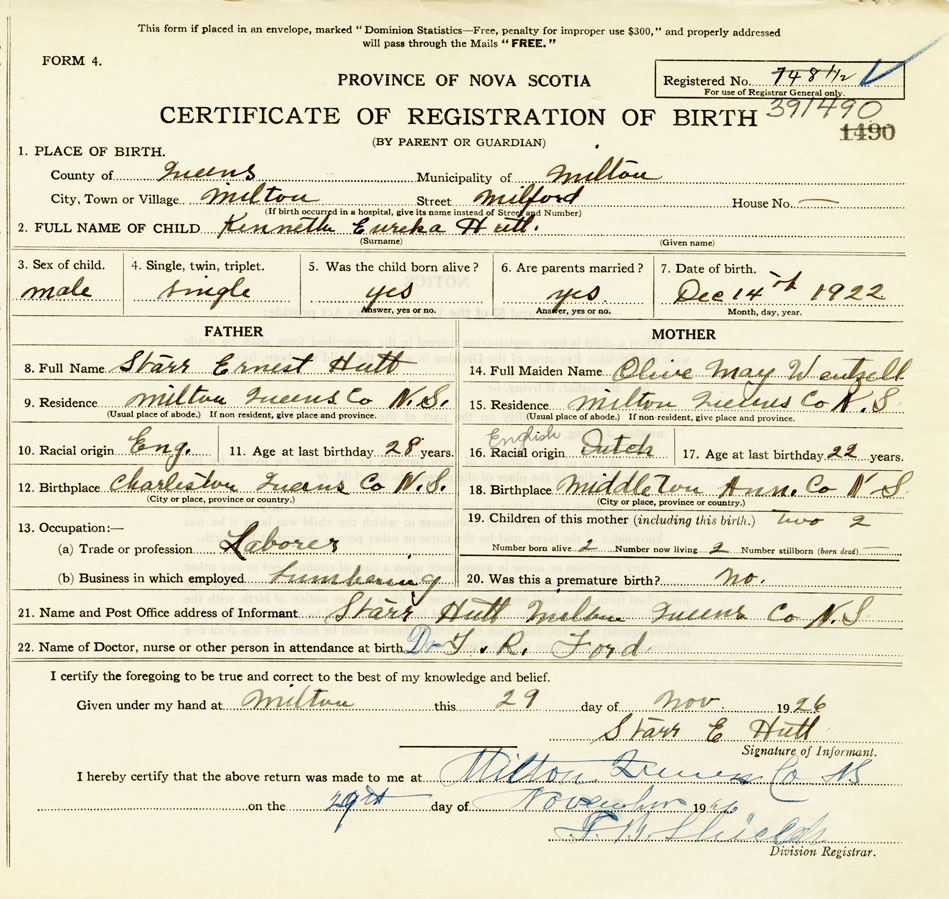 This form if placed in an envelope, marked "Dominion Statistics—Free, penalty for improper use $300," and properly addressed
will pass through the Mails "FREE."
FORM 4.
PROVINCE OF NOVA SCOTIA
Registered No. 748 1/2
For use of Registrar General only.
CERTIFICATE OF REGISTRATION OF BIRTH 391490
1490
(BY PARENT OR GUARDIAN)
1. PLACE OF BIRTH.
County of Queens Municipality of Milton
City, Town or Village Milton Street Milford House No. —
(If birth occurred in a hospital, give its name instead of Street and Number)
2. FULL NAME OF CHILD Kenneth Eureka Hutt.
(Surname) (Given name)
3. Sex of child. 4. Single, twin, triplet. 5. Was the child born alive? 6. Are parents married? 7. Date of birth.
male single yes yes. Dec 14th 1922
Answer, yes or no. Answer, yes or no. Month, day, year.
FATHER MOTHER
8. Full Name Starr Ernest Hutt 14. Full Maiden Name Olive May Wentzell
9. Residence Milton Queens Co N.S. 15. Residence Milton Queens Co N.S
(Usual place of abode.) If non resident, give place and province. (Usual place of abode.) If non resident, give place and province.
English
10. Racial origin Eng. 11. Age at last birthday 28 years. 16. Racial origin Dutch 17. Age at last birthday 22 years.
12. Birthplace Charleston Queens Co N.S. 18. Birthplace Middleton Ann. Co N S
(City or place, province or country.) (City or place, province or country.)
13. Occupation:— 19. Children of this mother (including this birth.) two 2
(a) Trade or profession Laborer Number born alive 2 Number now living 2 Number stillborn (born dead) —
(b) Business in which employed Lumbering 20. Was this a premature birth? no.
21. Name and Post Office address of Informant Starr Hutt Milton Queens Co N.S
22. Name of Doctor, nurse or other person in attendance at birth Dr T. R. Ford.
I certify the foregoing to be true and correct to the best of my knowledge and belief.
Given under my hand at Milton this 29 day of Nov. 1926
Starr E Hutt
Signature of Informant.
I hereby certify that the above return was made to me at Milton Queens Co NS
on the 29th day of November 1926
Shields
Division Registrar.